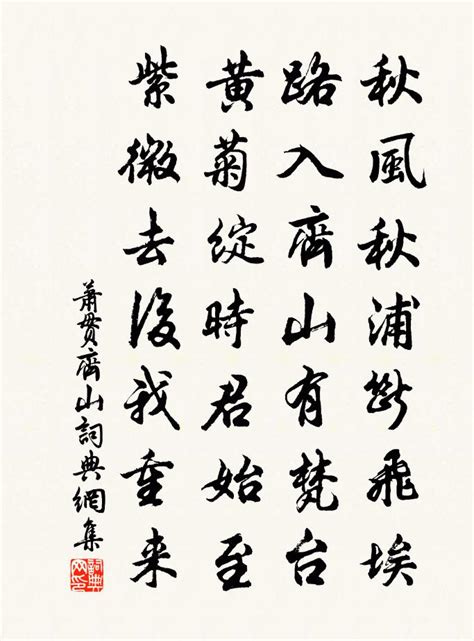 秋風秋浦斷飛埃
路入齊山有梵台
黃菊綻時君始至
紫微去後我重来
蕭貫齊山詞典網集